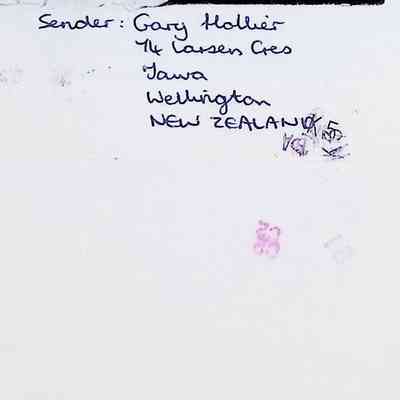 Sender: Gary Hollier
74 Larsen Cres
Tawa
Wellington
NEW ZEALAND